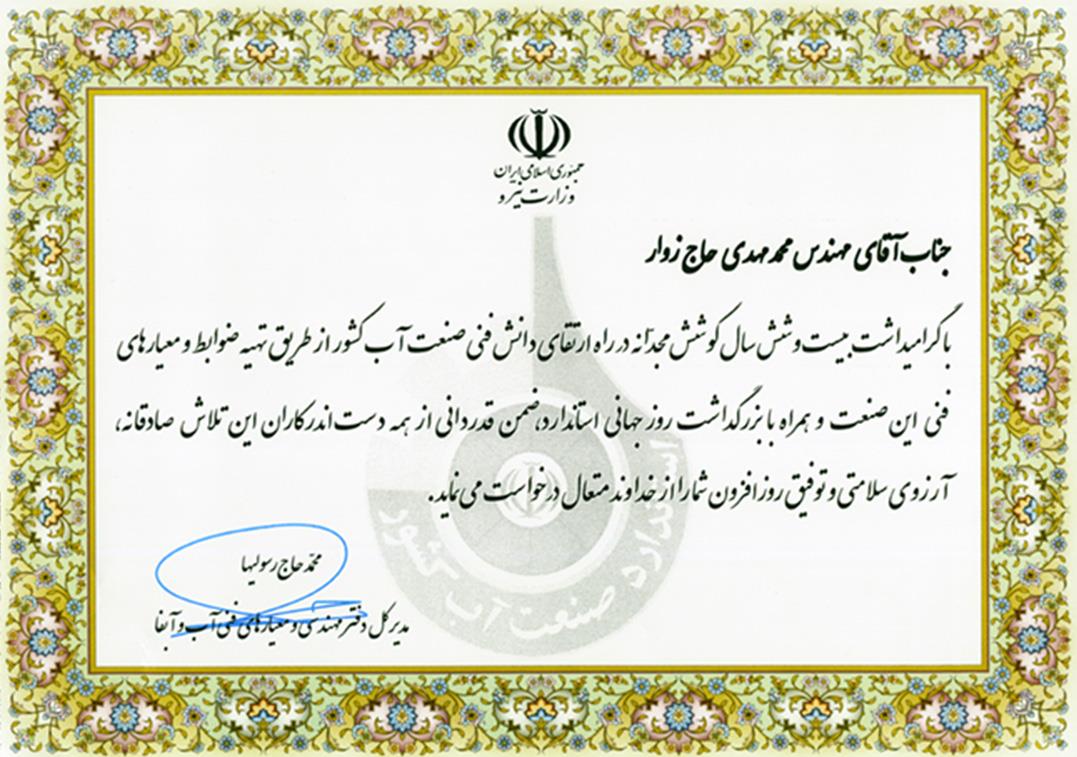 جمهوری اسلامی ایران
وزارت نیرو
جناب آقای مهندس محمد مهدی حاج زوار
با گرامیداشت بیست و شش سال کوشش مجدّانه در راه ارتقای دانش فنی صنعت آب کشور از طریق تهیه ضوابط و معیارهای
فنی این صنعت و همراه با بزرگداشت روز جهانی استاندارد، ضمن قدردانی از همه دست اندرکاران این تلاش صادقانه،
آرزوی سلامتی و توفیق روز افزون شما را از خداوند متعال درخواست می نماید.
استاندارد صنعت آب کشور
محمّد حاج رسولیها
مدیر کل دفتر مهندسی و معیارهای فنی آب و آبفا